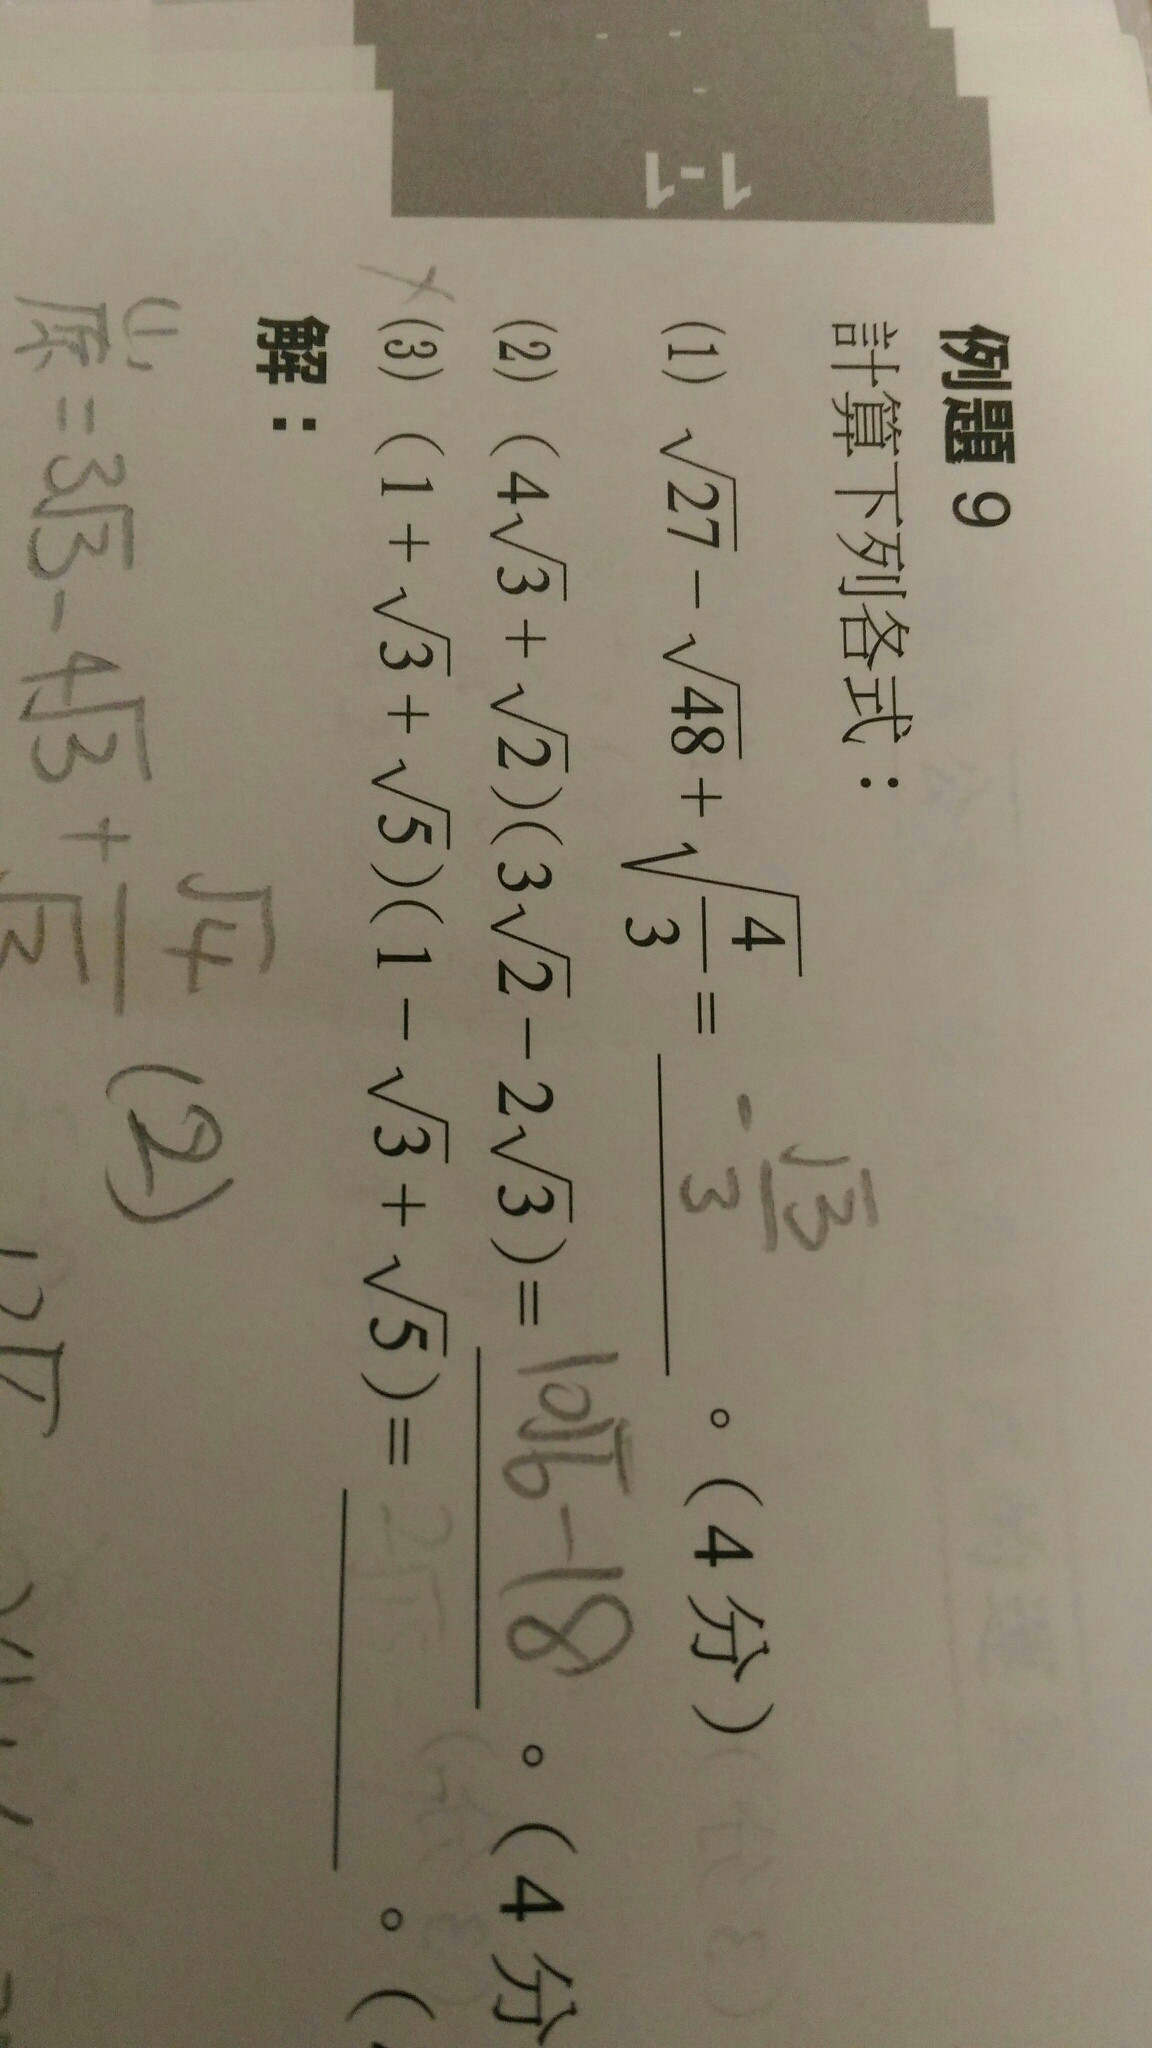 1-1
例題 9
計算下列各式：
(1) √27 − √48 + √(4/3) = -√3/3 。(4分)
(2) (4√3 + √2)(3√2 − 2√3) = 10√6-18 。(4分
×(3) (1 + √3 + √5)(1 − √3 + √5) = 2√5 。(
解：
(1) 原 = 3√3 - 4√3 + √4/√3 (2)